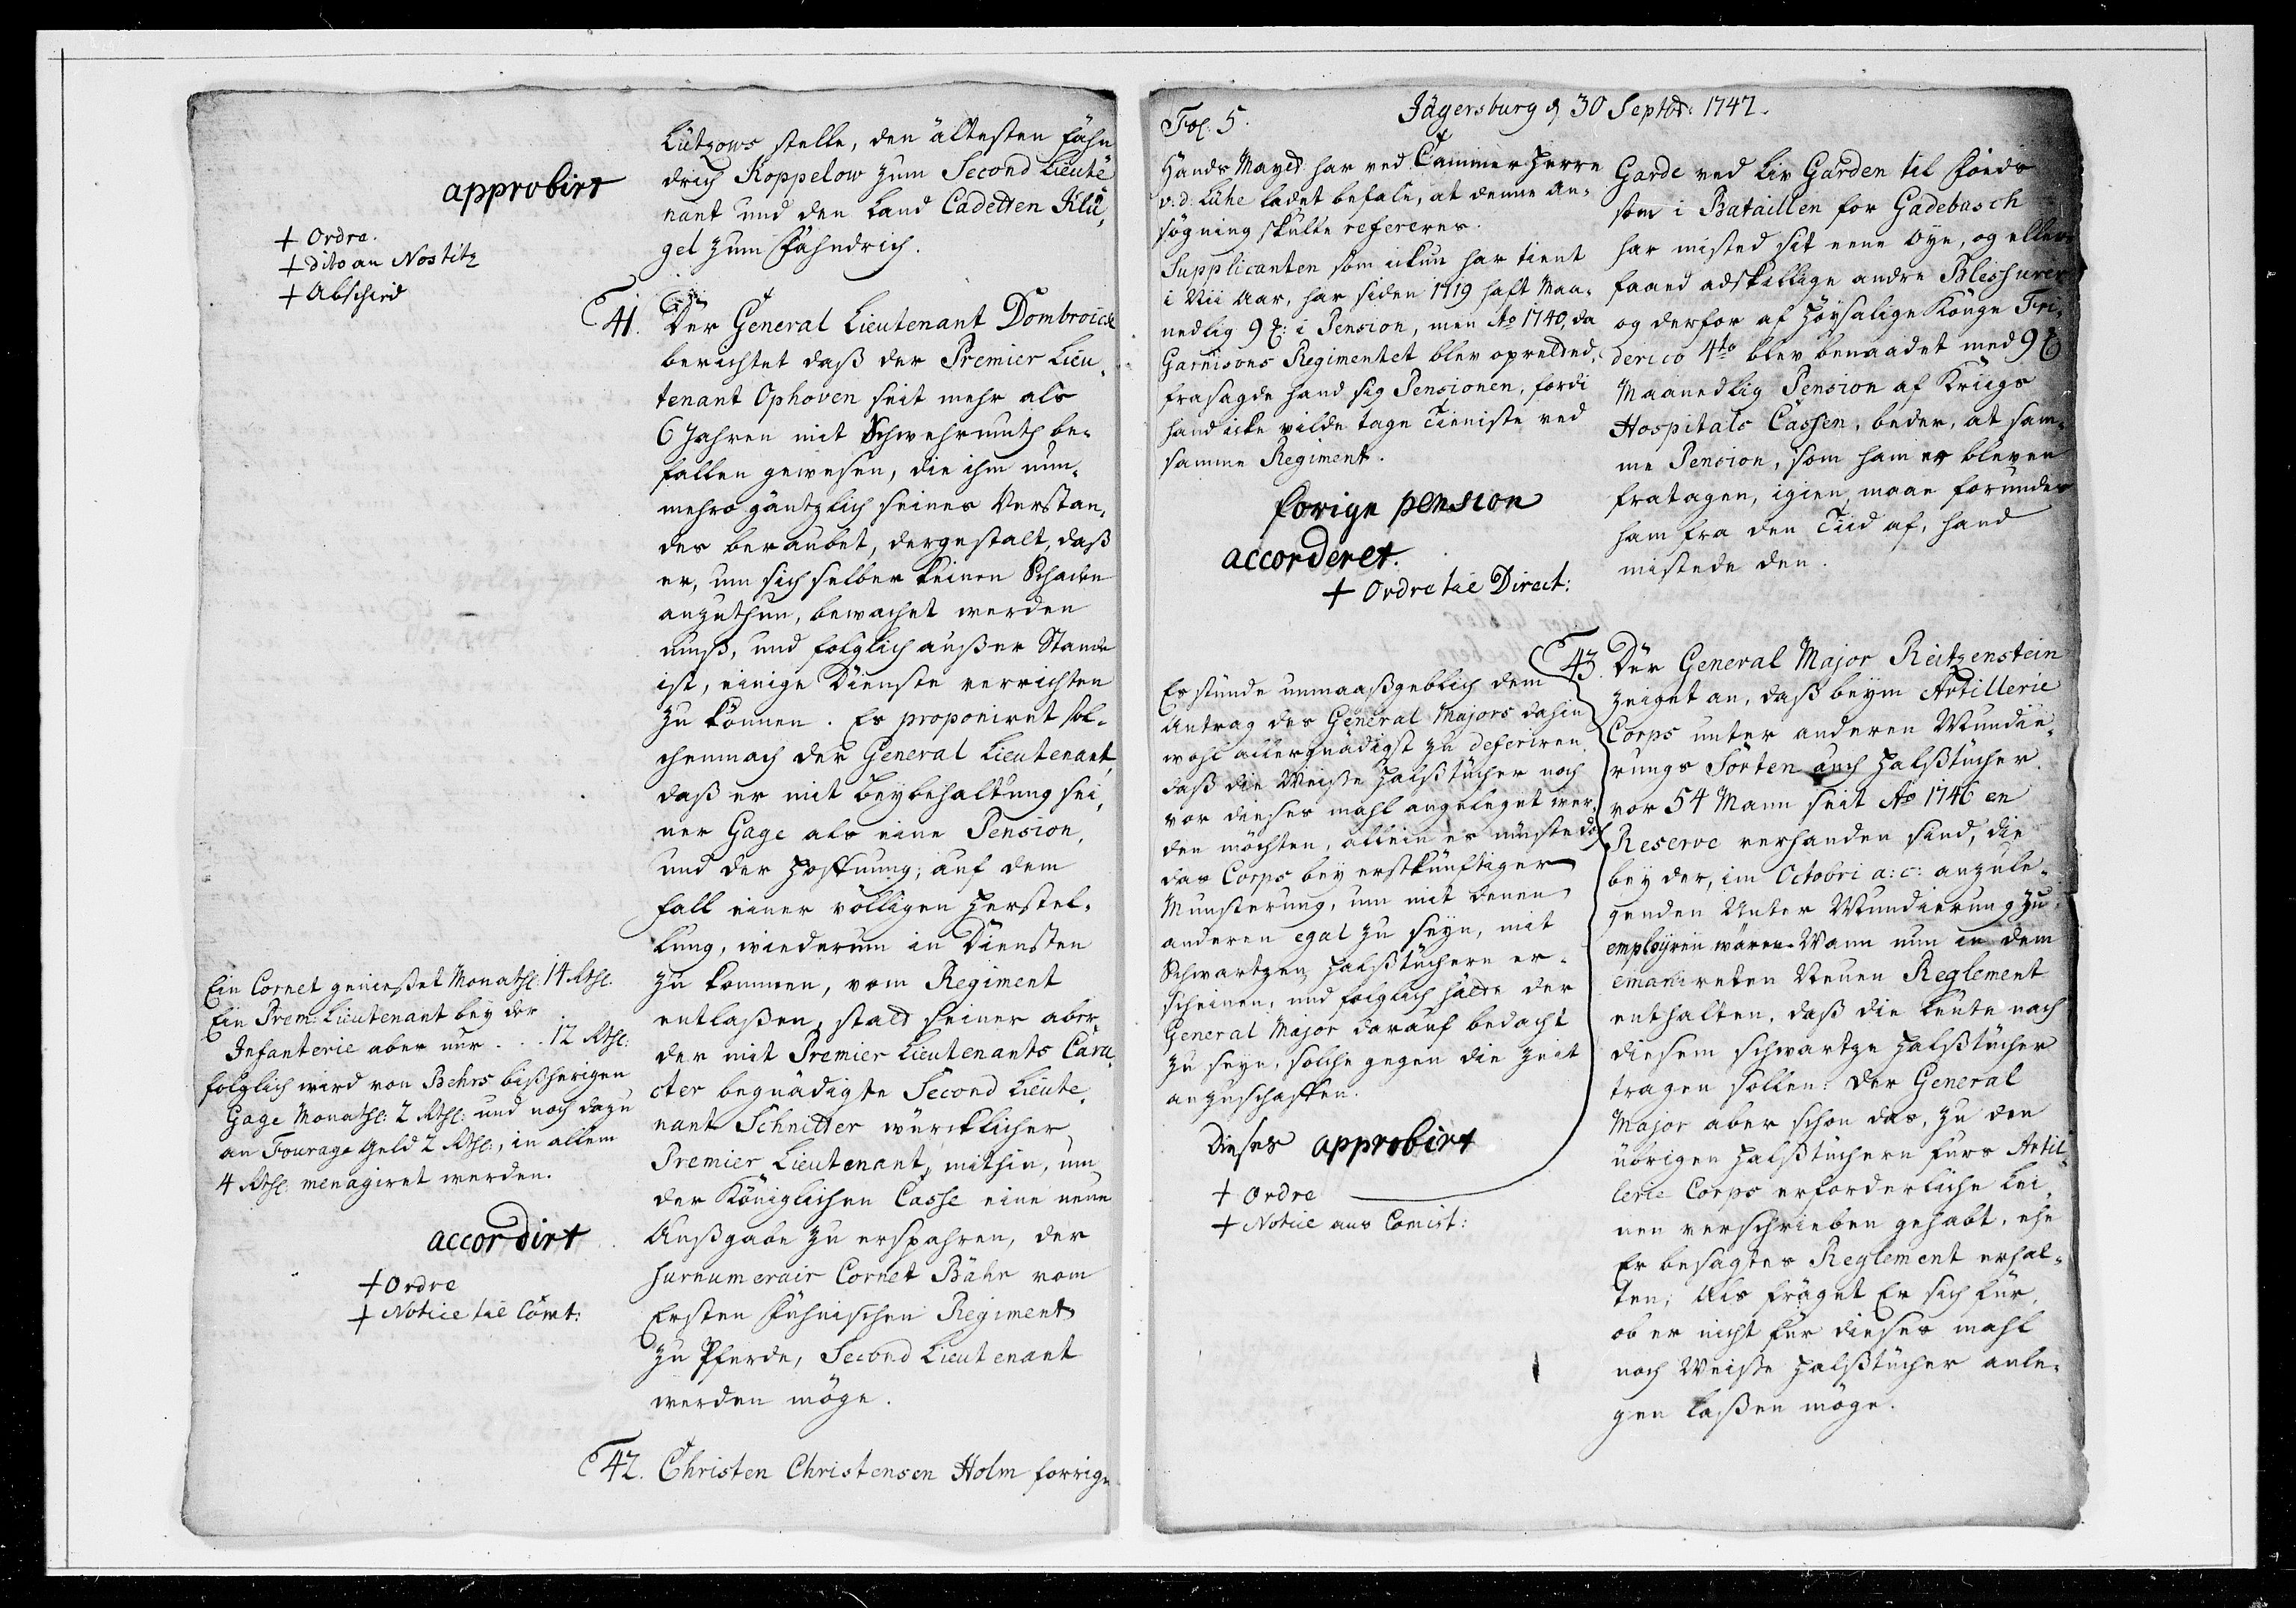 Lützows stelle, den ältesten Fähn
drich Koppelow zum Second Lieute
nant und den Land Cadetten Klü,
gel zum Fähndrich.
approbirt
+ Ordre.
+ dito an Nostitz
+ Abschied
41. Der General Lieutenant Dombroick
berichtet daß der Premier Lieu,
tenant Ophoven seit mehr als
6 Jahren mit Schwehrmuth be,
fallen gewesen, die ihm nun,
mehro gäntzlich seines Verstan,
des beraubet, dergestalt, daß
er, um sich selber keinen Schaden
anzuthun, bewachet werden
muß, und folglich außer Stande
ist, einige Dienste verrichten
zu können. Es proponiret sol,
chemnach der General Lieutenant,
daß er mit Beybehaltung sei,
ner Gage als eine Pension,
und der Hoffnung, auf dem
fall einer völligen Herstel,
lung, wiederum in Diensten
zu kommen, vom Regiment
entlaßen, statt seiner aber
der mit Premier Lieutenants Cara,
cter begnädigte Second Lieute,
nant Schnitter würcklicher
Premier Lieutenant, mithin, um
der Königlichen Casse eine neue
Außgabe zu erspahren, der
surnumerair Cornet Bähr vom
Ersten Fühnischen Regiment
zu Pferde, Second Lieutenant
werden möge.
Ein Cornet genießet Monathl: 14 Rthl.
Ein Prem: Lieutenant bey der
Infanterie aber nur . . . 12 Rthl:
folglich wird von Behrs bißherigen
Gage Monathl: 2 Rthl: und noch dazu
an Fourage Geld 2 Rthl:, in allem
4 Rthl: menagiret werden.
accordirt
+ Ordre
+ Notice til Comt:
42. Christen Christensen Holm forrige
Fol. 5.
Jägersburg d 30 Septbr: 1747.
Garde ved Liv Garden til Foeds
som i Bataillen for Gadebusch
har misted sit eene Øye, og ellers
faaed adskillige andre Blessurer
og derfor af Høysalige Konge Fri,
derico 4to blev benaadet med 9
Maanedlig Pension af Kriigs
Hospitals Cassen, beder, at sam,
me Pension, som ham er bleven
fratagen, igien maae forundes
ham fra den Tiid af, hand
mistede den.
Hands Mayts har ved Cammer Herre
v: d: Lühe ladet befale, at denne An,
søgning skulle refereres.
Supplicanten som ickun har tient
i Nii Aar, har siden 1719 haft Maa,
nedlig 9 : i Pension, men Ao 1740, da
Garnisons Regimentet blev oprettet,
frasagde hand sig Pensionen, fordi
hand icke vilde tage Tieniste ved
samme Regiment.
forige pension
accorderet.
+ Ordre til Direct:
43. Der General Major Reitzenstein
zeiget an, daß beym Artillerie
Corps unter anderen Mundie,
rungs Sorten auch Halßtücher
vor 54 Mann seit Ao 1746 en
Reserve verhanden sind, die
bey der, im Octobri a: c: anzule,
genden Unter Mundierung zu
employren wären. Wann nun in dem
emanireten Neuen Reglement
enthalten, daß die Leute nach
diesem schwartze Halßtücher
tragen sollen: der General
Major aber schon das, zu den
übrigen Halßtüchern fürs Artil,
lerie Corps erforderliche Lei,
nen verschrieben gehabt, ehe
Er besagtes Reglement erhal,
ten; Als fräget Er sich für,
ob er nicht für dieses mahl
noch Weiße Halßtücher anle,
gen laßen möge.
Es stünde unmaaßgeblich dem
Antrag des General Majors dahin
wohl allergnädigst zu deferiren,
daß die Weiße Halßtücher noch
vor dieses mahl angeleget wer,
den möchten, allein es müste doch
das Corps bey erstkünftiger
Munsterung, um mit denen
anderen egal zu seyn, mit
Schwartzen Halßtüchern er,
scheinen, und folglich hätte der
General Major darauf bedacht
zu seyn, solche gegen die Zeit
anzuschaffen.
Dieses approbirt
+ Ordre
+ Notice ans Comist: